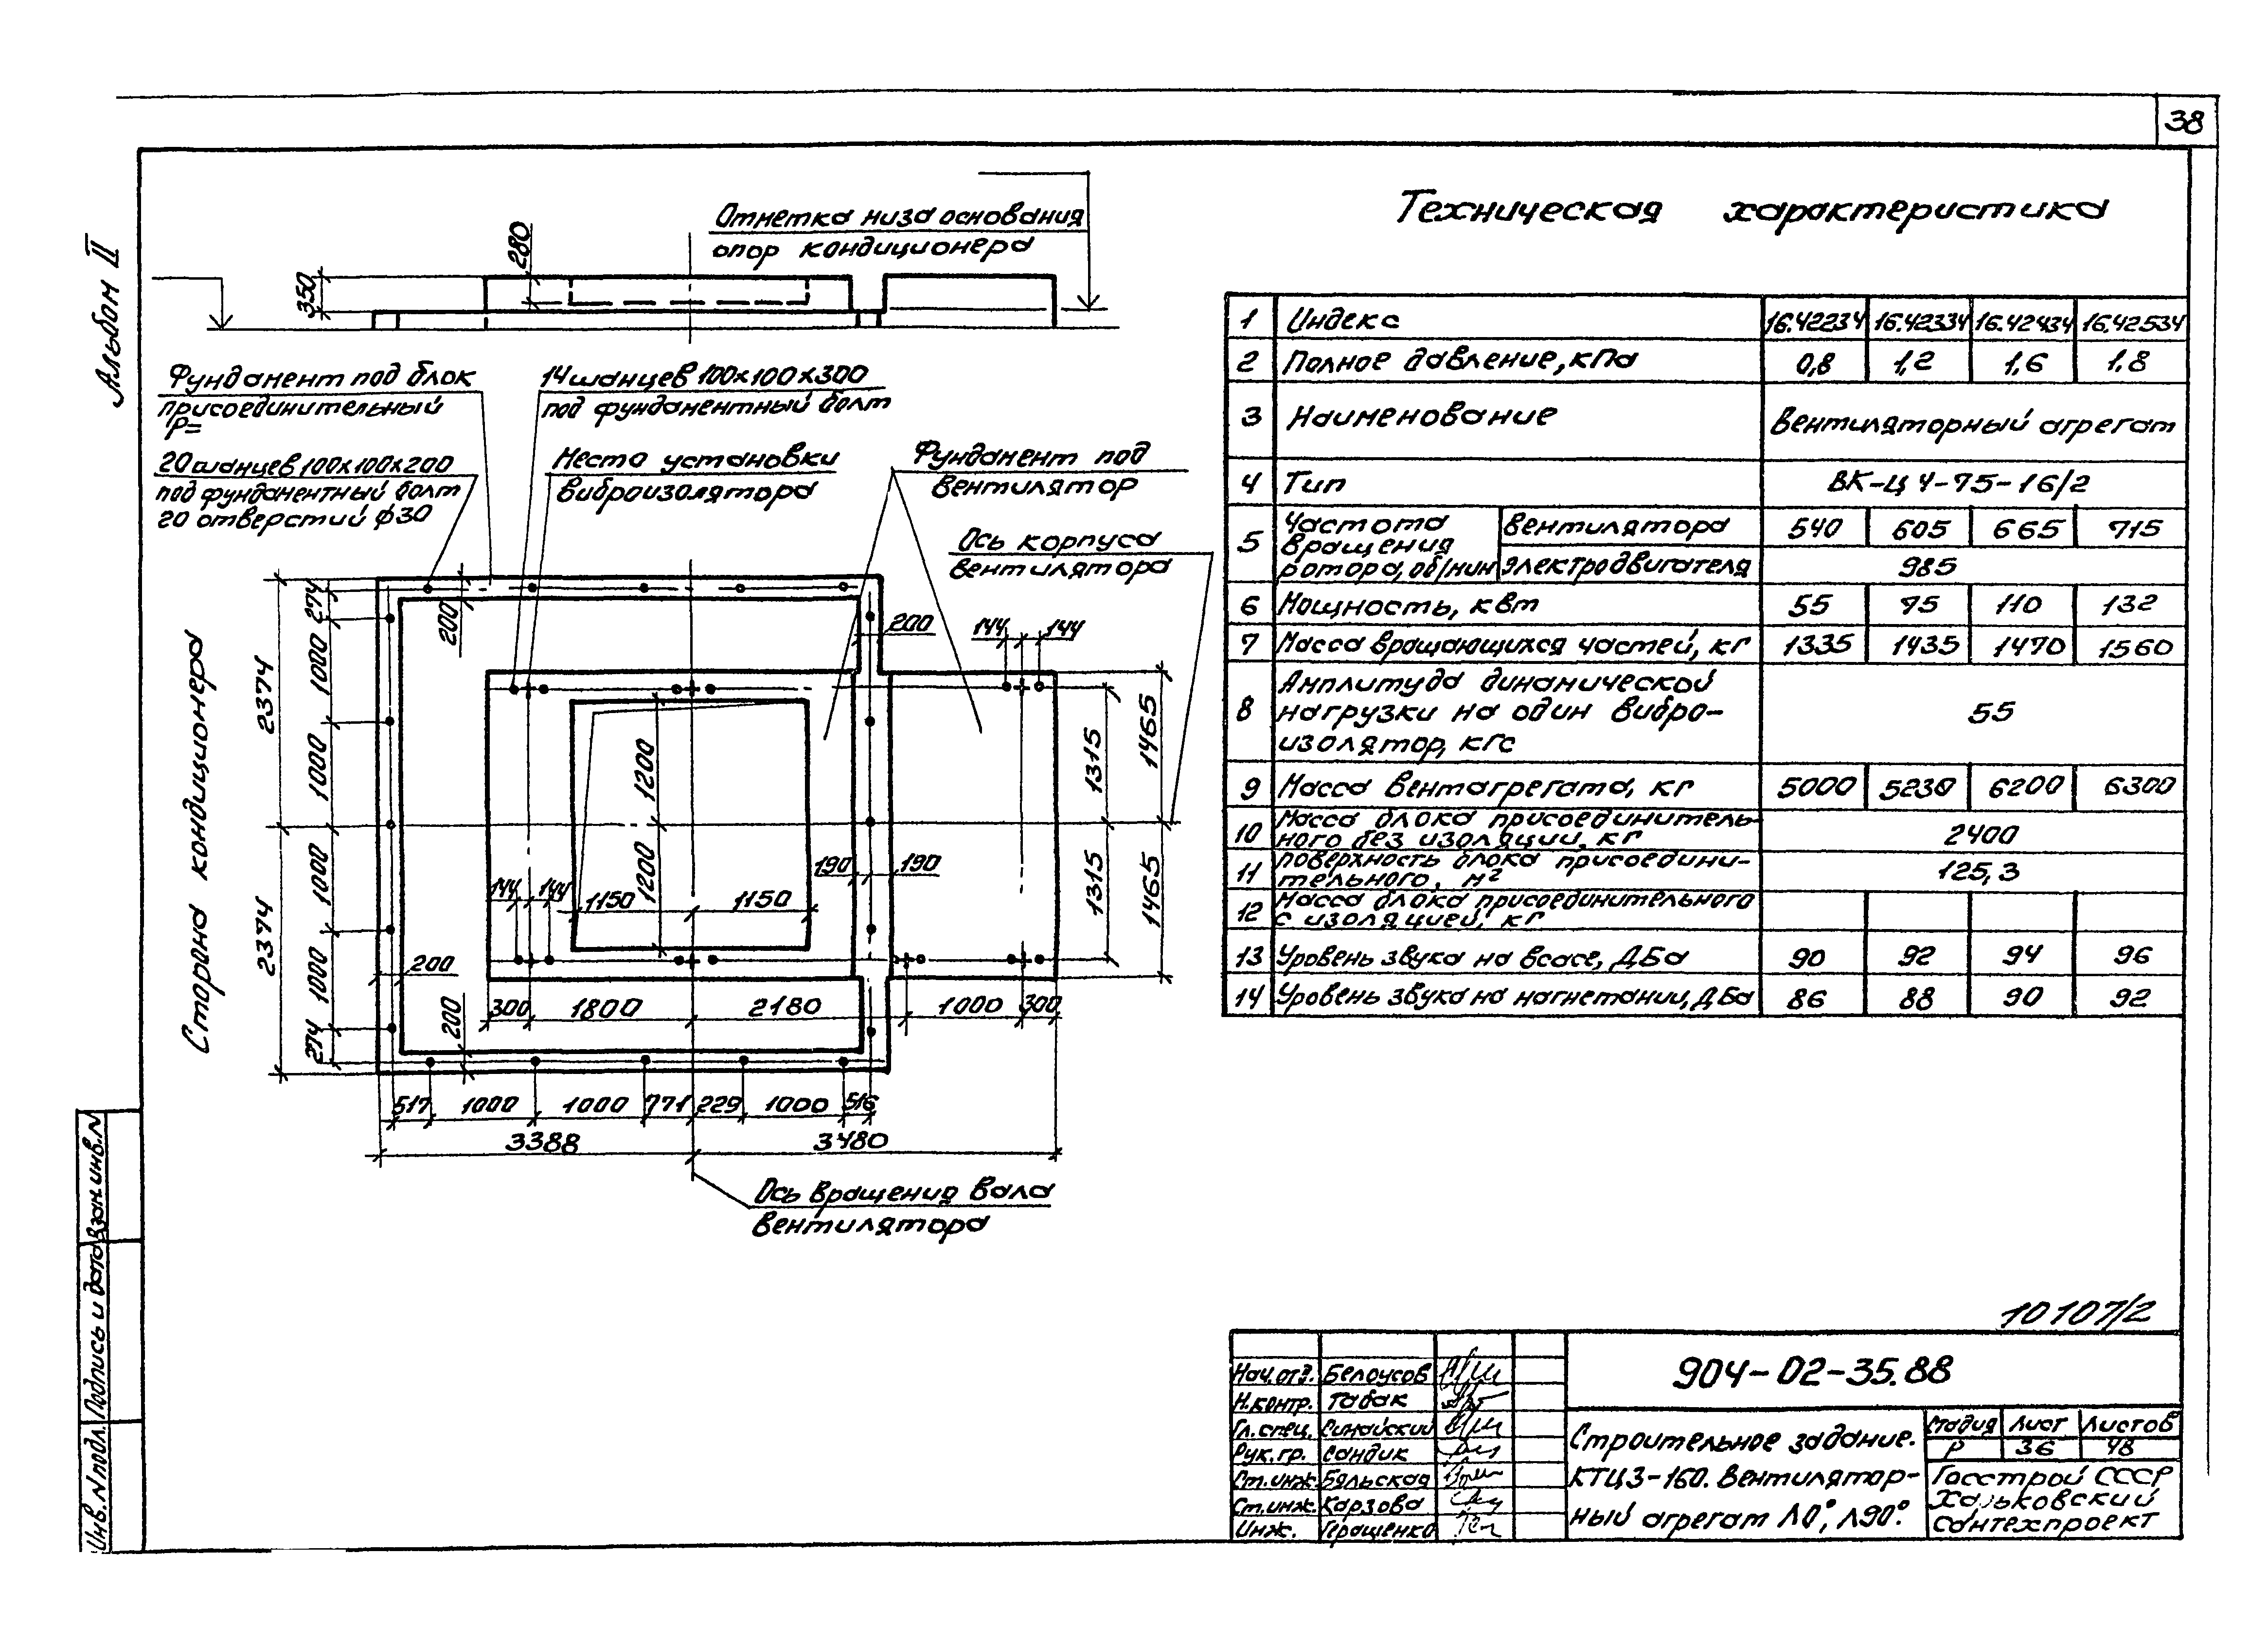 38
Альбом II
Отметка низа основания
опор кондиционера
280
350
Фундамент под блок
присоединительный
Р=
14 шанцев 100х100х300
под фундаментный болт
20 шанцев 100х100х200
под фундаментный болт
20 отверстий ф30
Места установки
виброизолятора
Фундамент под
вентилятор
Ось корпуса
вентилятора
Сторона кондиционера
2374
2374
274
1000
1000
1000
1000
274
200
200
144
144
1200
1200
1315
1465
1315
1465
190
190
144
144
1150
1150
200
200
300
1800
2180
1000
300
517
1000
1000
771
229
1000
516
3388
3480
Ось вращения вала
вентилятора
Техническая характеристика
1 Индекс 16.42234 16.42334 16.42434 16.42534
2 Полное давление, кПа 0,8 1,2 1,6 1.8
3 Наименование Вентиляторный агрегат
4 Тип ВК-Ц 4-75-16/2
5 Частота вращения ротора, об/мин вентилятора 540 605 665 715
электродвигателя 985
6 Мощность, квт 55 75 110 132
7 Масса вращающихся частей, кг 1335 1435 1470 1560
8 Амплитуда динамической
нагрузки на один вибро-
изолятор, кгс 55
9 Масса вентагрегата, кг 5000 5230 6200 6300
10 Масса блока присоединитель-
ного без изоляции, кг 2400
11 Поверхность блока присоедини-
тельного, м² 125,3
12 Масса блока присоединительного
с изоляцией, кг
13 Уровень звука на всасе, ДБа 90 92 94 96
14 Уровень звука на нагнетании, ДБа 86 88 90 92
10107/2
904-02-35.88
Нач.отд. Белоусов
Н.контр. Табак
Гл.спец. Синайский
Рук.гр. Сандик
Ст.инж. Бяльская
Ст.инж. Карзова
Инж. Геращенко
Строительное задание.
КТЦ3-160. Вентилятор-
ный агрегат Л0°, Л90°.
Стадия Лист Листов
Р 36 48
Госстрой СССР
Харьковский
Сантехпроект
Инв.N подл. Подпись и дата Взам.инв.N